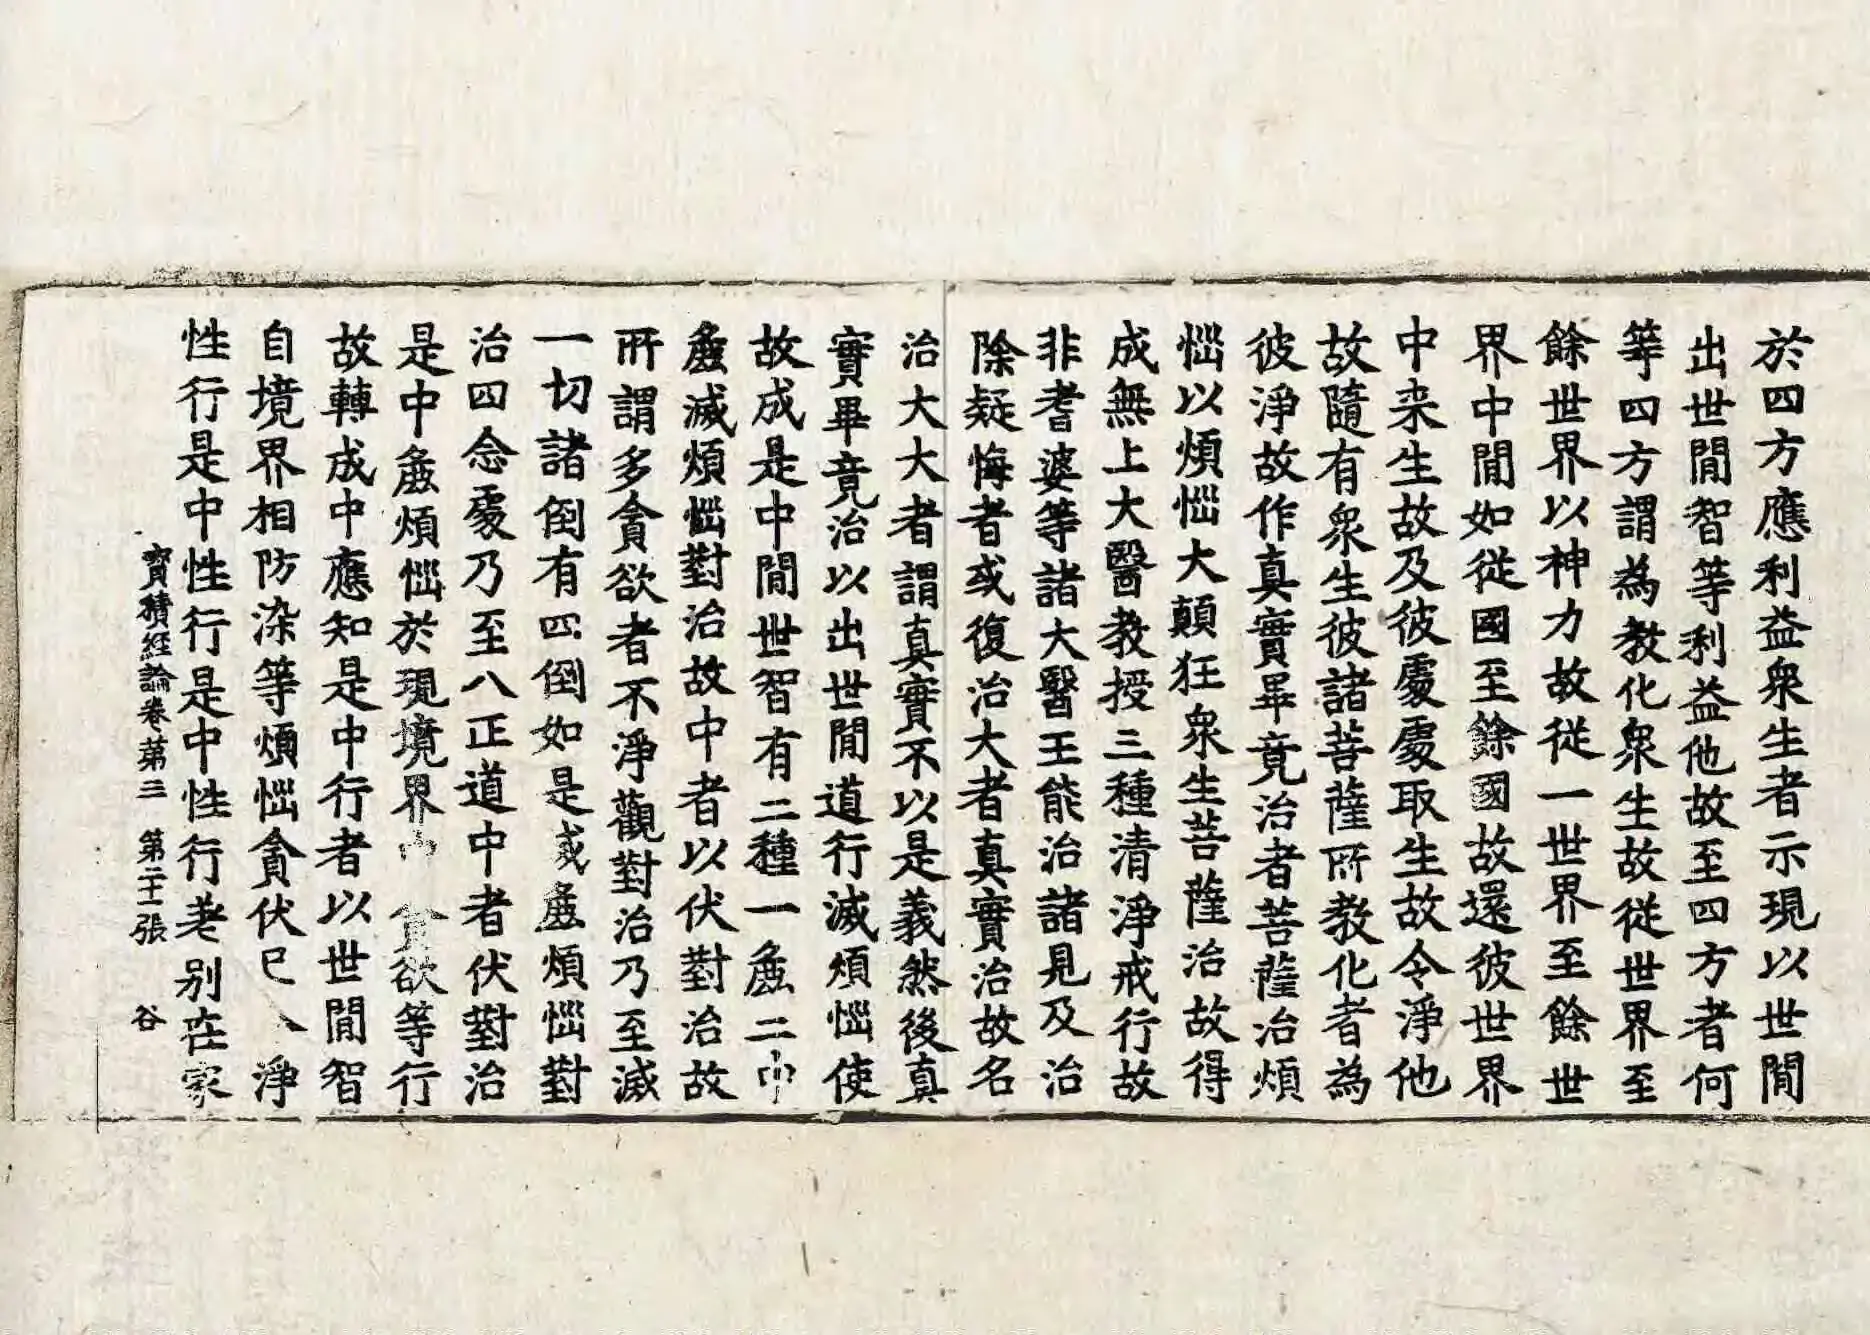 於四方應利益衆生者示現以世間
出世間智等利益他故至四方者何
等四方謂為教化衆生故從世界至
餘世界以神力故從一世界至餘世
界中間如從國至餘國故還彼世界
中来生故及彼處處取生故令淨他
故隨有衆生彼諸菩薩所教化者為
彼淨故作真實畢竟治者菩薩治煩
惱以煩惱大顛狂衆生菩薩治故得
成無上大醫教授三種清淨戒行故
非耆婆等諸大醫王能治諸見及治
除疑悔者或復治大者真實治故名
治大大者謂真實不以是義然後真
實畢竟治以出世間道行滅煩惱使
故成是中間世智有二種一麁二中
麁滅煩惱對治故中者以伏對治故
所謂多貪欲者不淨觀對治乃至滅
一切諸倒有四倒如是或麁煩惱對
治四念處乃至八正道中者伏對治
是中麁煩惱於現境界貪欲等行
故轉成中應知是中行者以世間智
自境界相防染等煩惱貪伏已淨
性行是中性行是中性行差別在家
寶積經論卷第三 第二十一張 谷